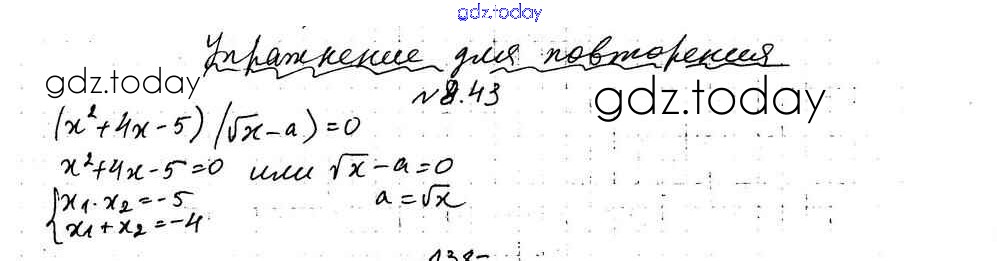 gdz.today
Упражнение для повторения
gdz.today
№8.43
gdz.today
(x²+4x-5)(√x-a)=0
x²+4x-5=0 или √x-a=0
{x₁·x₂=-5 a=√x
x₁+x₂=-4